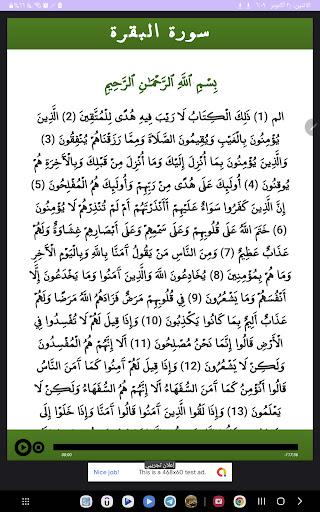 الاثنين، ٢١ أكتوبر ٦:٠٩
سورة البقرة
بِسْمِ اللَّهِ الرَّحْمَٰنِ الرَّحِيمِ
الم (1) ذَٰلِكَ الْكِتَابُ لَا رَيْبَ فِيهِ هُدًى لِلْمُتَّقِينَ (2) الَّذِينَ
يُؤْمِنُونَ بِالْغَيْبِ وَيُقِيمُونَ الصَّلَاةَ وَمِمَّا رَزَقْنَاهُمْ يُنْفِقُونَ (3)
وَالَّذِينَ يُؤْمِنُونَ بِمَا أُنْزِلَ إِلَيْكَ وَمَا أُنْزِلَ مِنْ قَبْلِكَ وَبِالْآخِرَةِ هُمْ
يُوقِنُونَ (4) أُولَٰئِكَ عَلَىٰ هُدًى مِنْ رَبِّهِمْ وَأُولَٰئِكَ هُمُ الْمُفْلِحُونَ (5)
إِنَّ الَّذِينَ كَفَرُوا سَوَاءٌ عَلَيْهِمْ أَأَنْذَرْتَهُمْ أَمْ لَمْ تُنْذِرْهُمْ لَا يُؤْمِنُونَ
(6) خَتَمَ اللَّهُ عَلَىٰ قُلُوبِهِمْ وَعَلَىٰ سَمْعِهِمْ وَعَلَىٰ أَبْصَارِهِمْ غِشَاوَةٌ وَلَهُمْ
عَذَابٌ عَظِيمٌ (7) وَمِنَ النَّاسِ مَنْ يَقُولُ آمَنَّا بِاللَّهِ وَبِالْيَوْمِ الْآخِرِ
وَمَا هُمْ بِمُؤْمِنِينَ (8) يُخَادِعُونَ اللَّهَ وَالَّذِينَ آمَنُوا وَمَا يَخْدَعُونَ إِلَّا
أَنْفُسَهُمْ وَمَا يَشْعُرُونَ (9) فِي قُلُوبِهِمْ مَرَضٌ فَزَادَهُمُ اللَّهُ مَرَضًا وَلَهُمْ
عَذَابٌ أَلِيمٌ بِمَا كَانُوا يَكْذِبُونَ (10) وَإِذَا قِيلَ لَهُمْ لَا تُفْسِدُوا فِي
الْأَرْضِ قَالُوا إِنَّمَا نَحْنُ مُصْلِحُونَ (11) أَلَا إِنَّهُمْ هُمُ الْمُفْسِدُونَ
وَلَٰكِنْ لَا يَشْعُرُونَ (12) وَإِذَا قِيلَ لَهُمْ آمِنُوا كَمَا آمَنَ النَّاسُ
قَالُوا أَنُؤْمِنُ كَمَا آمَنَ السُّفَهَاءُ أَلَا إِنَّهُمْ هُمُ السُّفَهَاءُ وَلَٰكِنْ لَا
يَعْلَمُونَ (13) وَإِذَا لَقُوا الَّذِينَ آمَنُوا قَالُوا آمَنَّا وَإِذَا خَلَوْا إِلَىٰ
00:00
-117:56
إعلان تجريبي
Nice job! This is a 468x60 test ad.